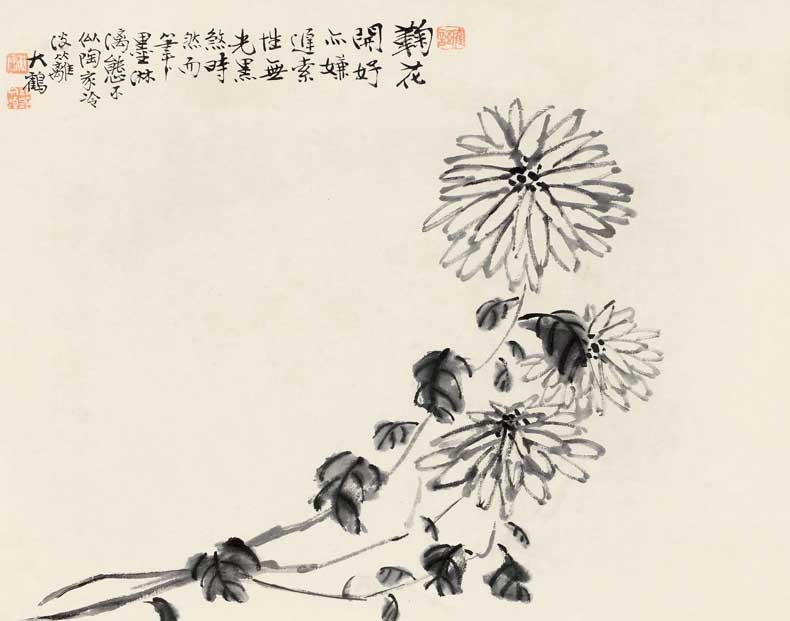 鞠花
開好
亦嫌
遲索
性無
光黑
煞時
然而
筆下
墨淋
漓態不
似陶家冷
淡籬
大鶴